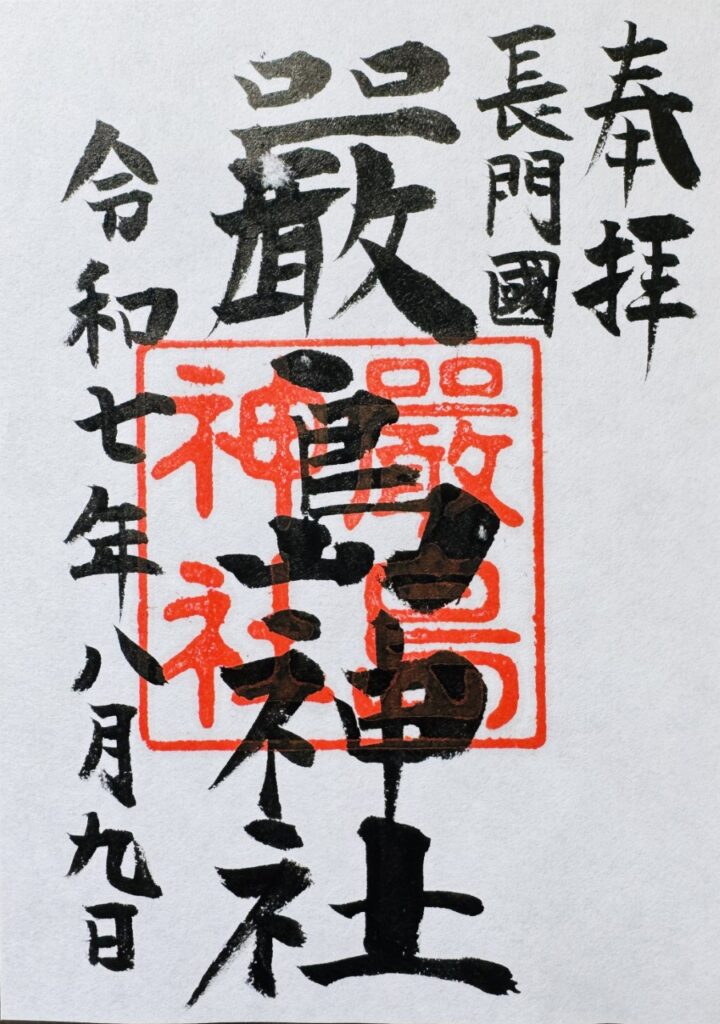 奉拝
長門國
厳島神社
令和七年八月九日
嚴島
神社